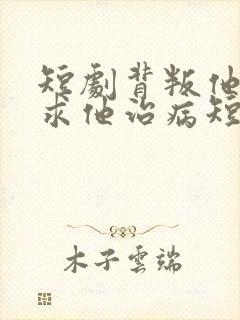 短劇背叛他
求他治病短
木子雲端